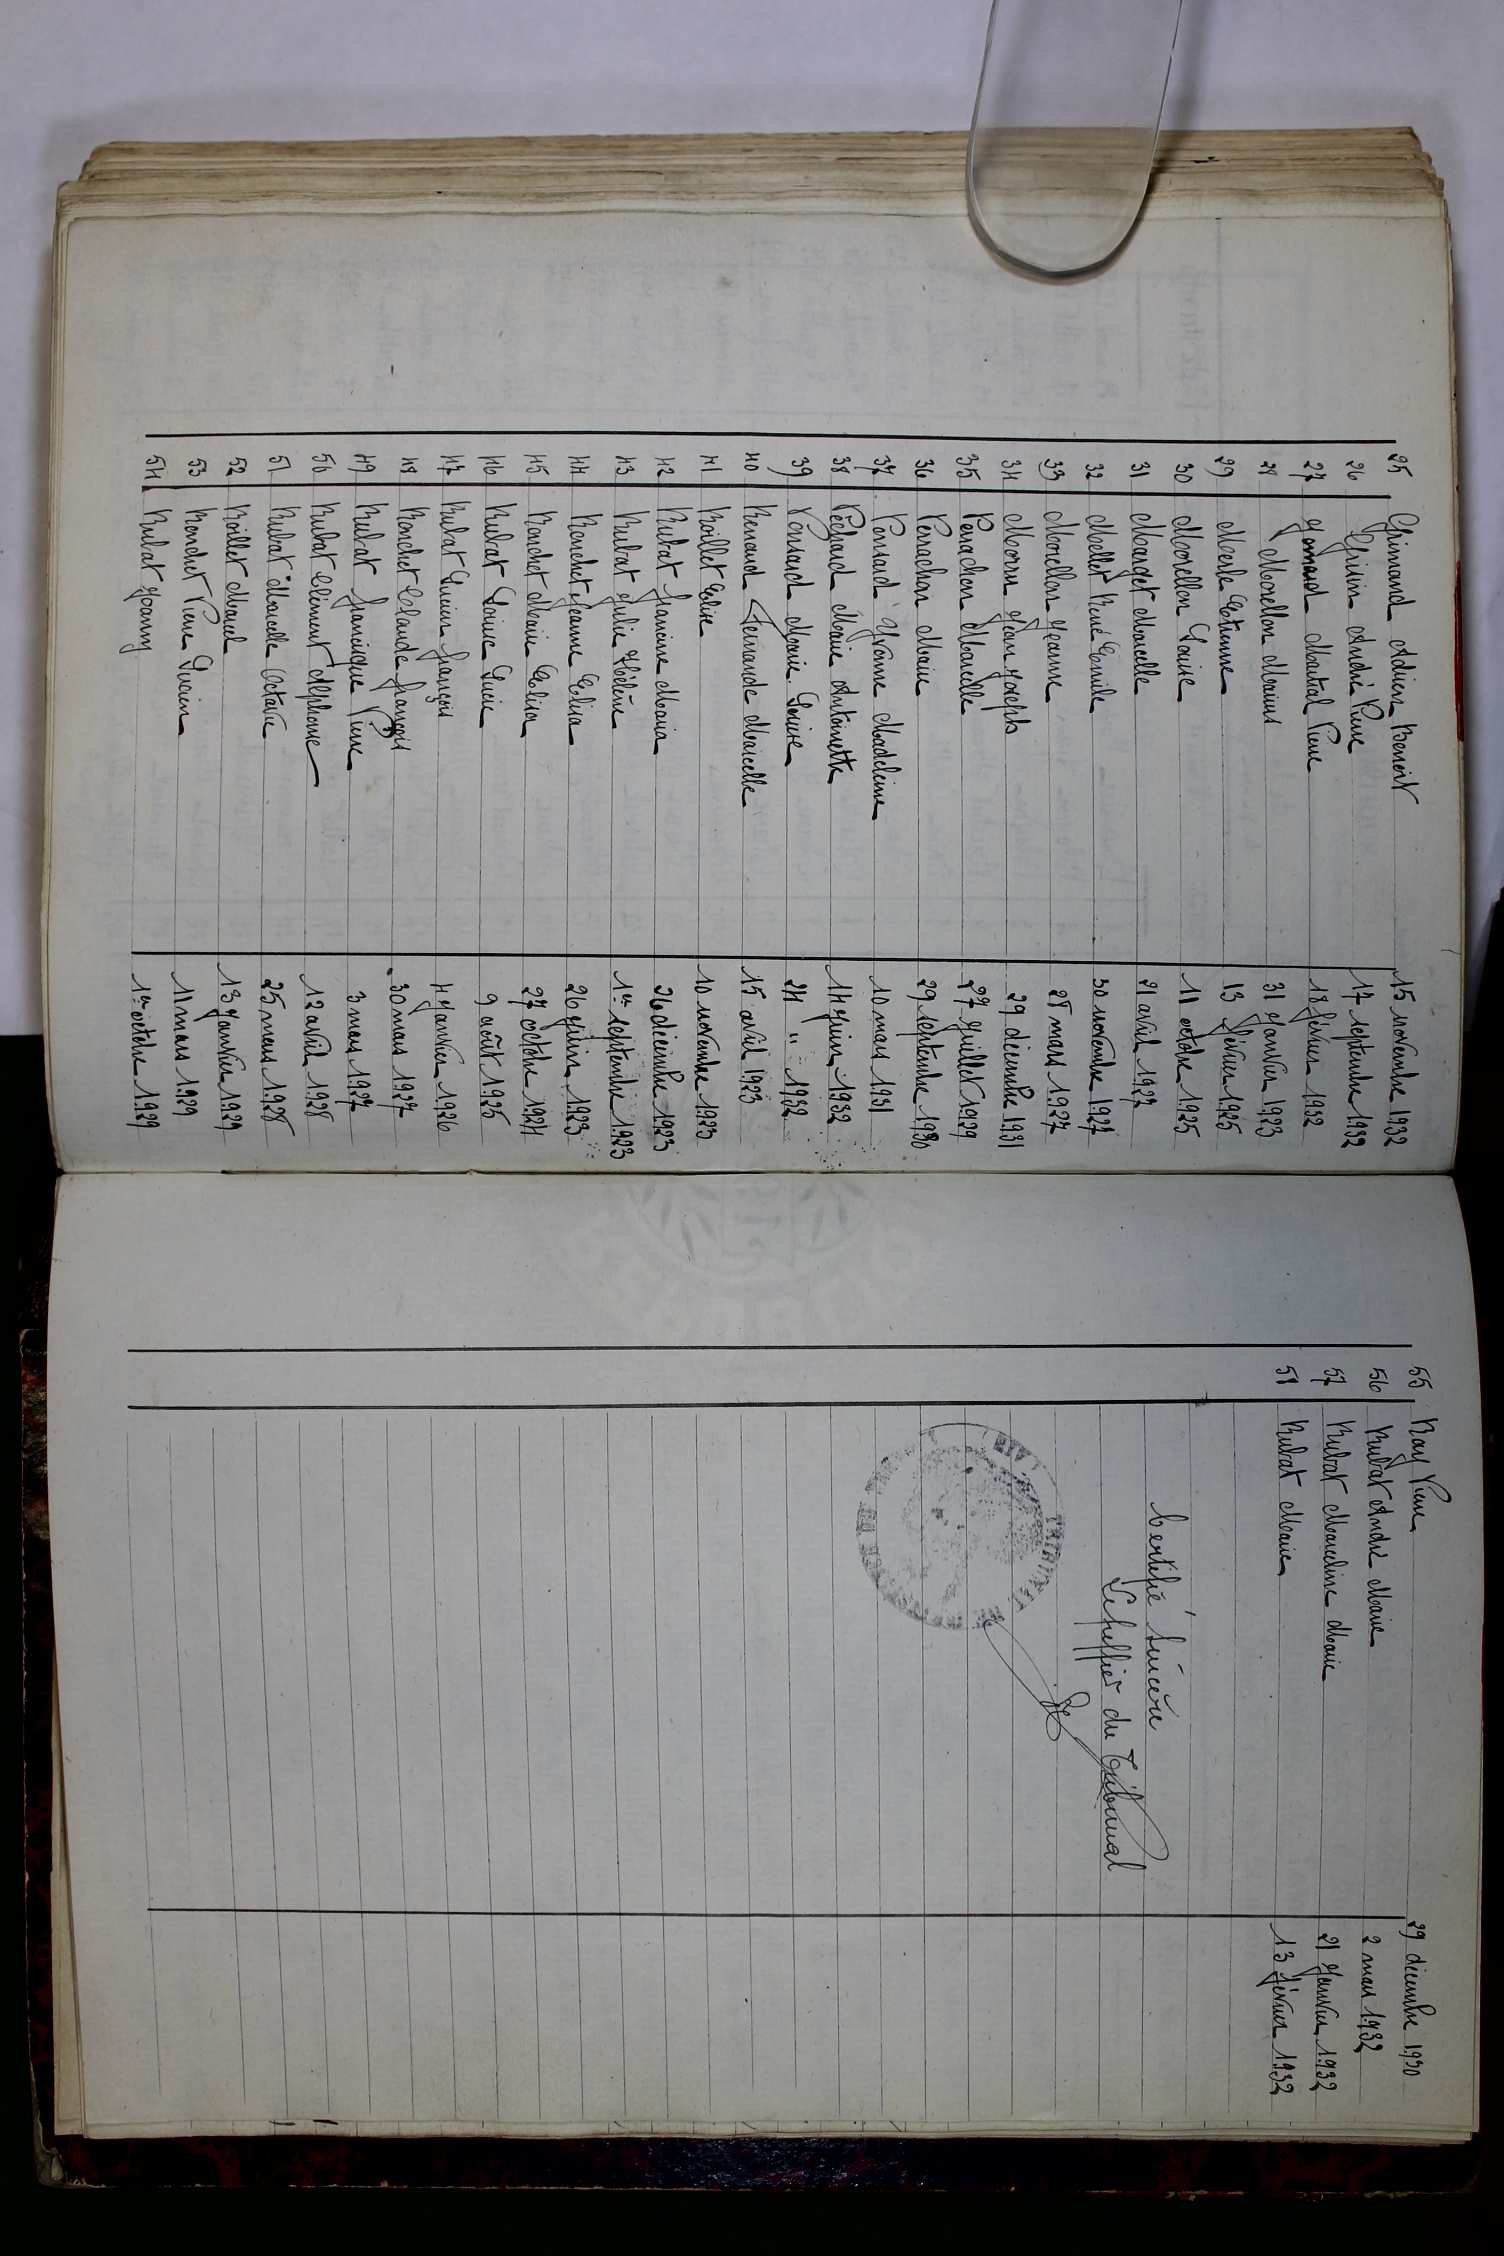 25 Grimand Adrien Benoit 15 novembre 1932
26 Guérin André Pierre 17 septembre 1932
27 Gonnard Martial Pierre 18 février 1932
28 Morellon Marius 31 Janvier 1923
29 Merle Etienne 13 février 1925
30 Morellon Louise 11 octobre 1925
31 Marget Marcelle 21 avril 1927
32 Mallet René Emile 30 novembre 1927
33 Morellon Jeanne 28 mars 1927
34 Morin Jean Joseph 29 décembre 1931
35 Perrachon Marcelle 27 juillet 1929
36 Perrachon Marie 29 septembre 1930
37 Ponsard Yvonne Madeleine 10 mars 1931
38 Péchard Marie Antoinette 14 juin 1932
39 Ponsard Marie Louise 24 " 1932
40 Renaud Fernande Marcelle 15 avril 1923
41 Roillet Elise 10 novembre 1923
42 Rubat Francine Maria 26 décembre 1923
43 Rubat Julie Hélène 1er septembre 1923
44 Ronchet Jeanne Elisa 26 juin 1923
45 Ronchet Marie Elisa 27 octobre 1924
46 Rubat Louise Lucie 9 août 1925
47 Rubat Lucien François 4 Janvier 1926
48 Ronchet Claude François 30 mars 1927
49 Rubat Francisque Pierre 3 mars 1927
50 Rubat Clément Alphonse 12 avril 1928
51 Rubat Marcelle Octavie 25 mars 1928
52 Roillet Marcel 13 Janvier 1929
53 Ronchet Pierre Lucien 11 mars 1929
54 Rubat Joanny 1er octobre 1929
55 Ray Pierre 29 décembre 1930
56 Rubat André Marie 2 mars 1932
57 Rubat Marceline Marie 21 Janvier 1932
58 Rubat Marie 13 février 1932
Certifié sincère
Le greffier du Tribunal